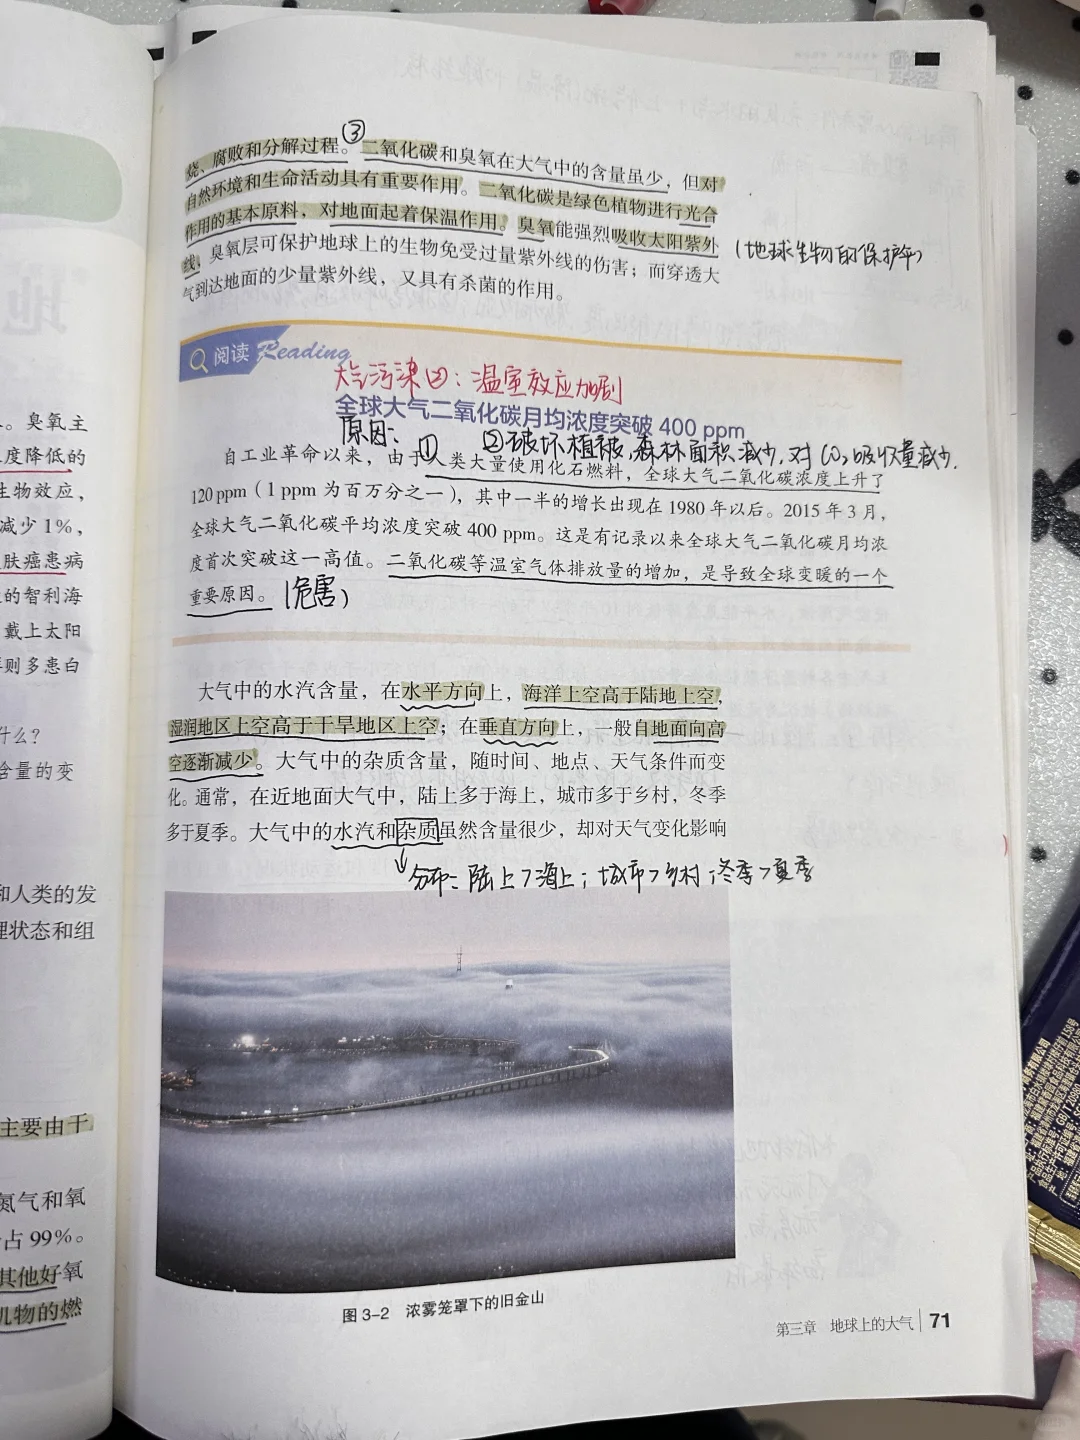 。臭氧主
度降低的
生物效应，
减少1%，
肤癌患病
的智利海
戴上太阳
则多患白
什么？
含量的变
和人类的发
理状态和组
主要由于
氮气和氧
占99%。
其他好氧
机物的燃
③
烧、腐败和分解过程。二氧化碳和臭氧在大气中的含量虽少，但对
自然环境和生命活动具有重要作用。二氧化碳是绿色植物进行光合
作用的基本原料，对地面起着保温作用。臭氧能强烈吸收太阳紫外
(地球生物的保护伞)
线，臭氧层可保护地球上的生物免受过量紫外线的伤害；而穿透大
气到达地面的少量紫外线，又具有杀菌的作用。
阅读 Reading
大气污染②：温室效应加剧
全球大气二氧化碳月均浓度突破 400 ppm
原因： ① ②破坏植被，森林面积减少，对CO₂吸收量减少.
自工业革命以来，由于人类大量使用化石燃料，全球大气二氧化碳浓度上升了
120 ppm（1 ppm 为百万分之一），其中一半的增长出现在 1980 年以后。2015 年 3 月，
全球大气二氧化碳平均浓度突破 400 ppm。这是有记录以来全球大气二氧化碳月均浓
度首次突破这一高值。二氧化碳等温室气体排放量的增加，是导致全球变暖的一个
重要原因。(危害)
大气中的水汽含量，在水平方向上，海洋上空高于陆地上空，
湿润地区上空高于干旱地区上空；在垂直方向上，一般自地面向高
空逐渐减少。大气中的杂质含量，随时间、地点、天气条件而变
化。通常，在近地面大气中，陆上多于海上，城市多于乡村，冬季
多于夏季。大气中的水汽和杂质虽然含量很少，却对天气变化影响
分布：陆上>海上；城市>乡村；冬季>夏季
图 3-2 浓雾笼罩下的旧金山
第三章 地球上的大气 71